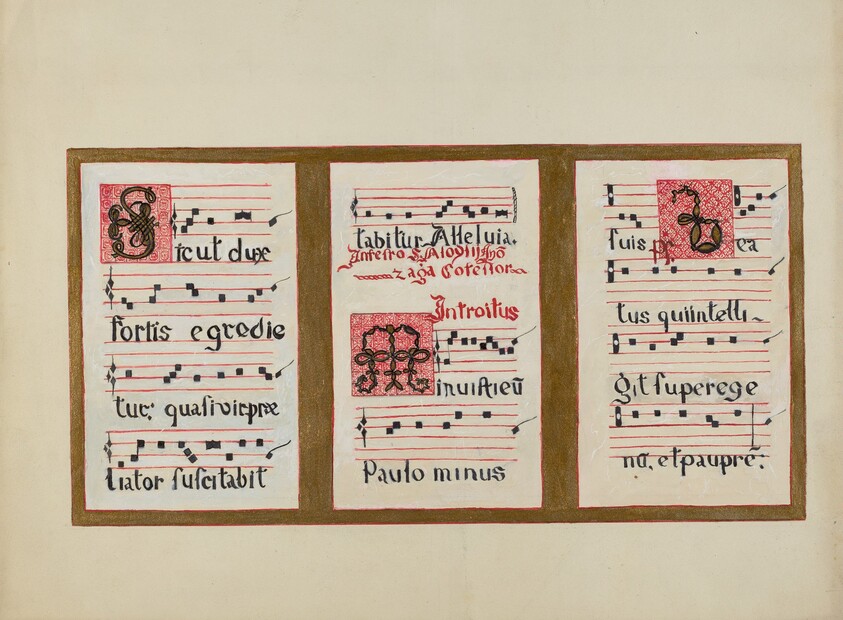 Sicut dux
fortis egredie
tur: quasi vir præ
liator suscitabit
tabitur Alleluia.
Infesto S. Aloÿsij Gõ
zaga Cofessor
Introitus
Minuisti eũ
Paulo minus
suis ps. Bea
tus qui intelli-
git super ege
nũ, et paupre: